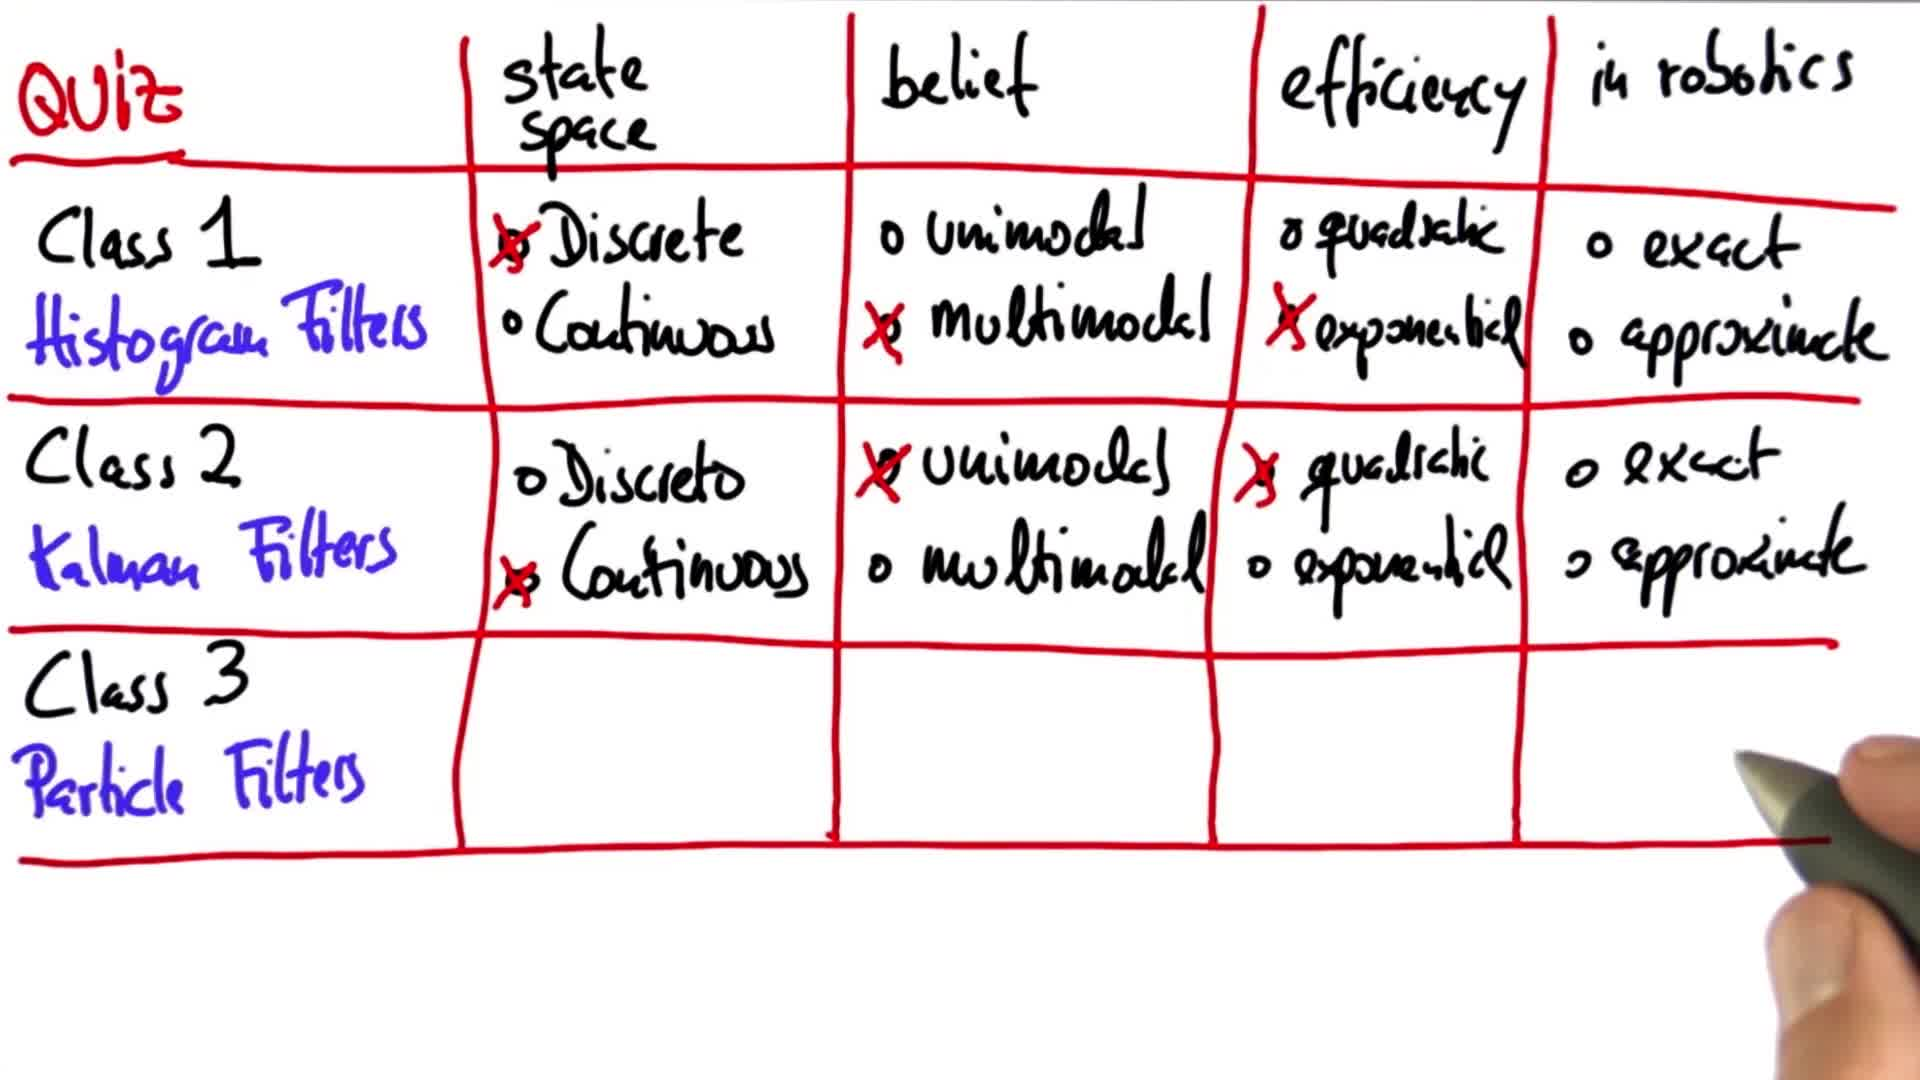 QUiz
state
space
belief
efficiency
in robotics
Class 1
Histogram Filters
o Discrete
o Continuous
o unimodal
o multimodal
o quadratic
o exponential
o exact
o approximate
Class 2
Kalman Filters
o Discrete
o Continuous
o unimodal
o multimodal
o quadratic
o exponential
o exact
o approximate
Class 3
Particle Filters